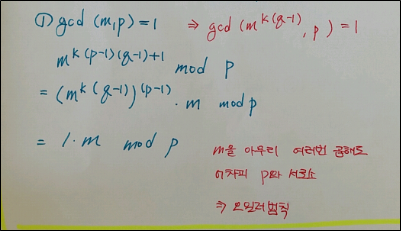 ① gcd(m,p)=1 ⇒ gcd(m^{k(q-1)}, p)=1
m^{k(p-1)(q-1)+1} mod p
= (m^{k(q-1)})^{(p-1)} · m mod p
= 1·m mod p
m을 아무리 여러번 곱해도
어차피 p와 서로소
⇒ 오일러 법칙